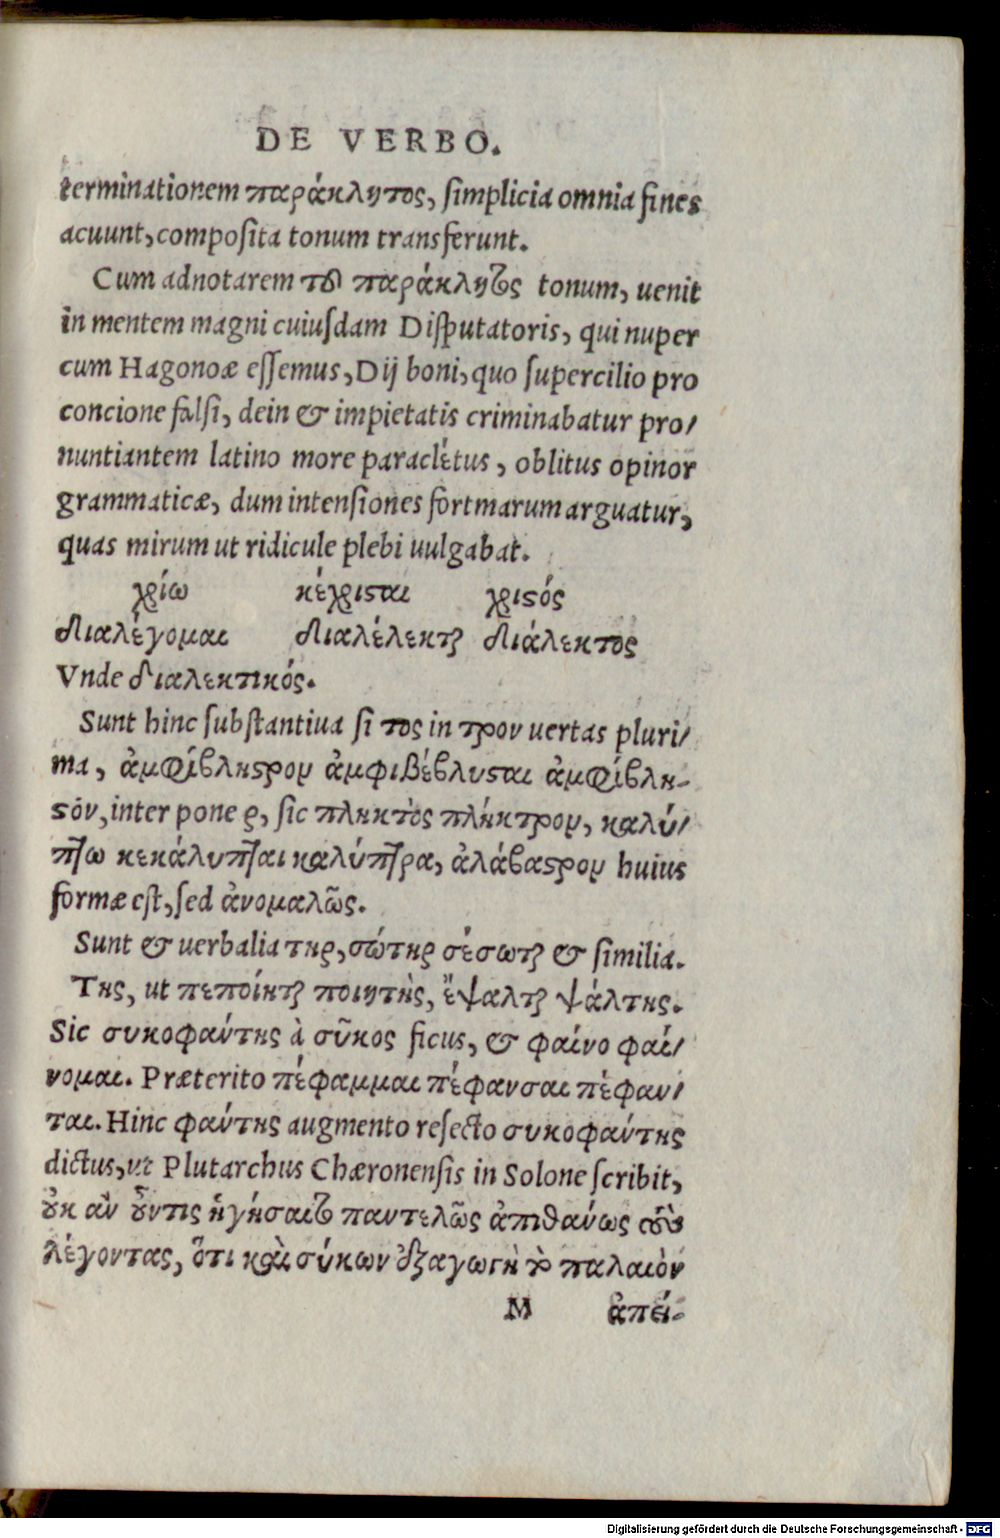 DE VERBO.
terminationem παράκλητος, simplicia omnia fines
acuunt, composita tonum transferunt.
Cum adnotarem τοῦ παράκλητος tonum, uenit
in mentem magni cuiusdam Disputatoris, qui nuper
cum Hagonoæ essemus, Dij boni, quo supercilio pro
concione falsi, dein & impietatis criminabatur pro/
nuntiantem latino more paraclétus, oblitus opinor
grammaticæ, dum intensiones fortmarum arguatur,
quas mirum ut ridicule plebi uulgabat.
χρίω κέχρισται χριστός
διαλέγομαι διαλέλεκται διάλεκτος
Vnde διαλεκτικός.
Sunt hinc substantiua si τος in τρον uertas pluri/
ma, ἀμφίβληστρον ἀμφιβέβλυσται ἀμφίβλη-
στόν, inter pone ρ, sic πληκτὸς πλήκτρον, καλύ/
πτω κεκάλυπται καλύπτρα, ἀλάβαστρον huius
formæ est, sed ἀνομαλῶς.
Sunt & uerbalia τηρ, σώτηρ σέσωται & similia.
Της, ut πεποίηται ποιητὴς, ἔψαλται ψάλτης.
Sic συκοφάντης à σῦκος ficus, & φαίνο φαί/
νομαι. Præterito πέφαμμαι πέφανσαι πέφαν/
ται. Hinc φάντης augmento resecto συκοφάντης
dictus, ut Plutarchus Chæronensis in Solone scribit,
οὐκ ἂν οὖντις ἡγήσαιτο παντελῶς ἀπιθάνως τοὺς
λέγοντας, ὅτι καὶ σύκων ἐξαγωγὴ τὸ παλαιὸν
M ἀπεί-
Digitalisierung gefördert durch die Deutsche Forschungsgemeinschaft - DFG